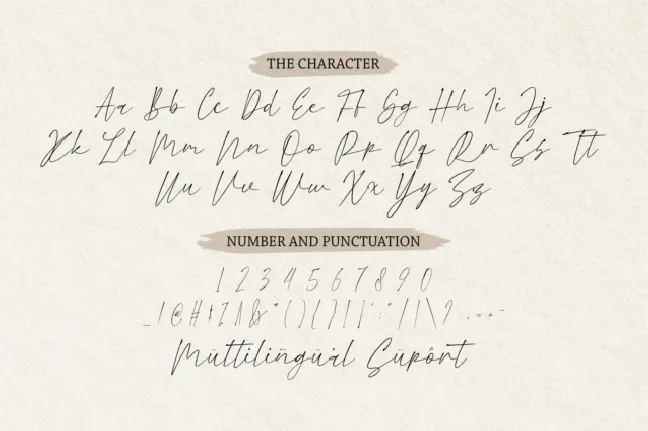 THE CHARACTER
Aa Bb Cc Dd Ee Ff Gg Hh Ii Jj
Kk Ll Mm Nn Oo Pp Qq Rr Ss Tt
Uu Vv Ww Xx Yy Zz
NUMBER AND PUNCTUATION
1 2 3 4 5 6 7 8 9 0
_ ! @ # $ % ^ & * ( ) { } [ ] ' : " / | \ ? . , = + -
Müttilingüal Süpôrt